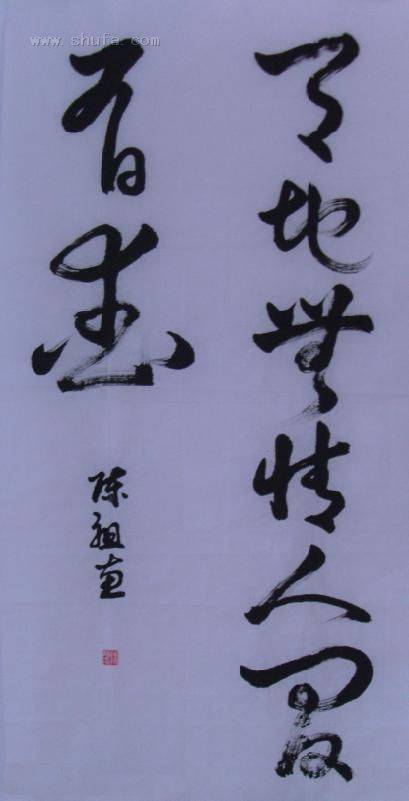 www.shufa.com
天地無情人間
有愛
陈祖